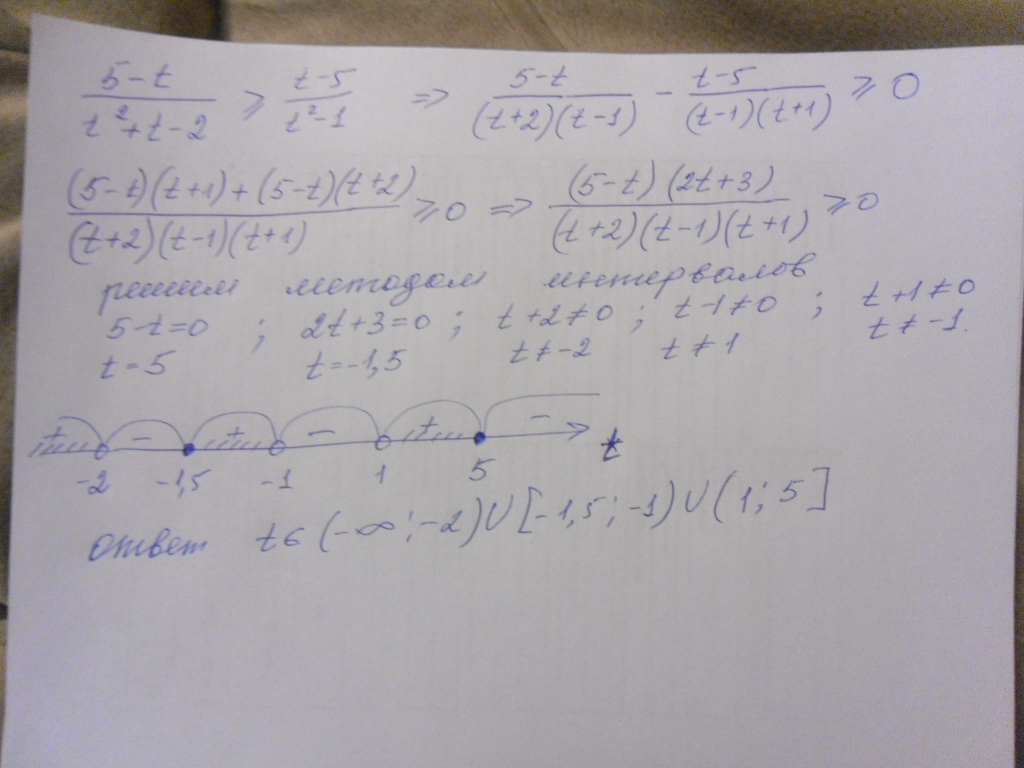 (5-t)/(t²+t-2) ⩾ (t-5)/(t²-1) => (5-t)/((t+2)(t-1)) - (t-5)/((t-1)(t+1)) ⩾ 0
((5-t)(t+1)+(5-t)(t+2))/((t+2)(t-1)(t+1)) ⩾ 0 => ((5-t)(2t+3))/((t+2)(t-1)(t+1)) ⩾ 0
решим методом интервалов
5-t=0 ; 2t+3=0 ; t+2≠0 ; t-1≠0 ; t+1≠0
t=5 t=-1,5 t≠-2 t≠1 t≠-1.
+ - + - + - t
-2 -1,5 -1 1 5
ответ t∈(-∞;-2)∪[-1,5;-1)∪(1;5]